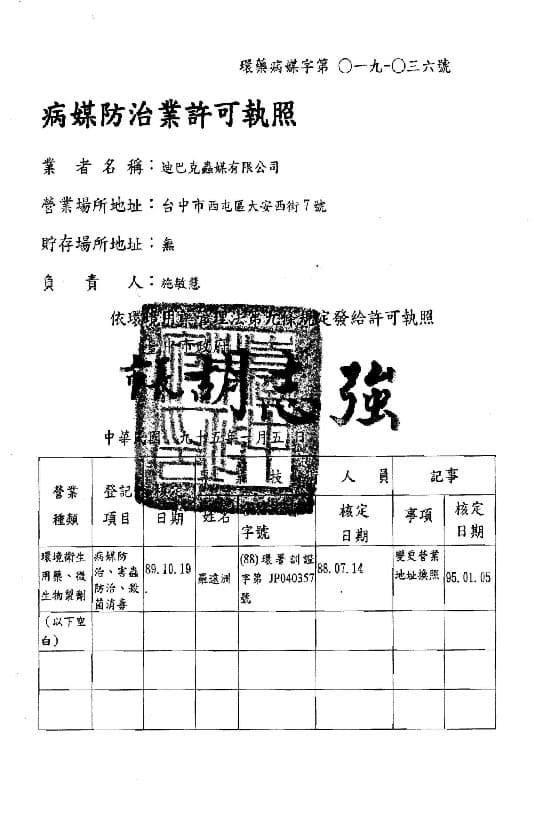 環藥病媒字第 〇一九-〇三六號
病媒防治業許可執照
業者名稱：迪巴克蟲媒有限公司
營業場所地址：台中市西屯區大安西街7號
貯存場所地址：無
負責人：施敏慧
依環境用藥管理法第九條規定發給許可執照
市政府
胡志強
中華民國九十五年一月五日
技 人員 記事
營業種類 登記項目 日期 姓名 字號 核定日期 事項 核定日期
環境衛生 病媒防 (88)環署訓證 變更營業
用藥、微 治、害蟲 89.10.19 羅遠洲 字第 JP040357 88.07.14 地址換照 95.01.05
生物製劑 防治、殺 號
菌消毒
(以下空
白)